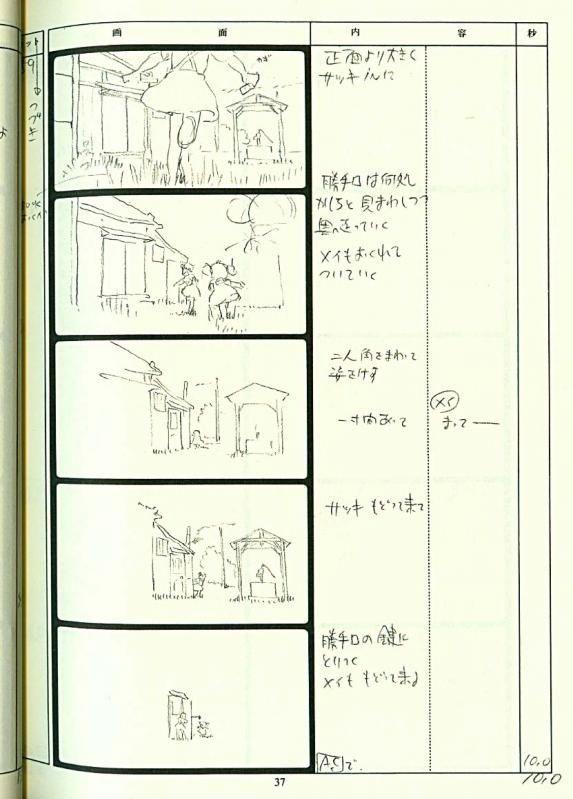 画 面 内 容 秒
ット
9
つづき
かぎ
正面より大きく
サッキ inに
勝手口は何処
かしらと見まわしつつ
奥へ走っていく
メイもおくれて
ついていく
二人角をまわって
姿をけす
一寸間あって
メイ
まって——
サツキ もどって来て
勝手口の鍵に
とりつく
メイも もどって来る
で
10.0
10.0
37